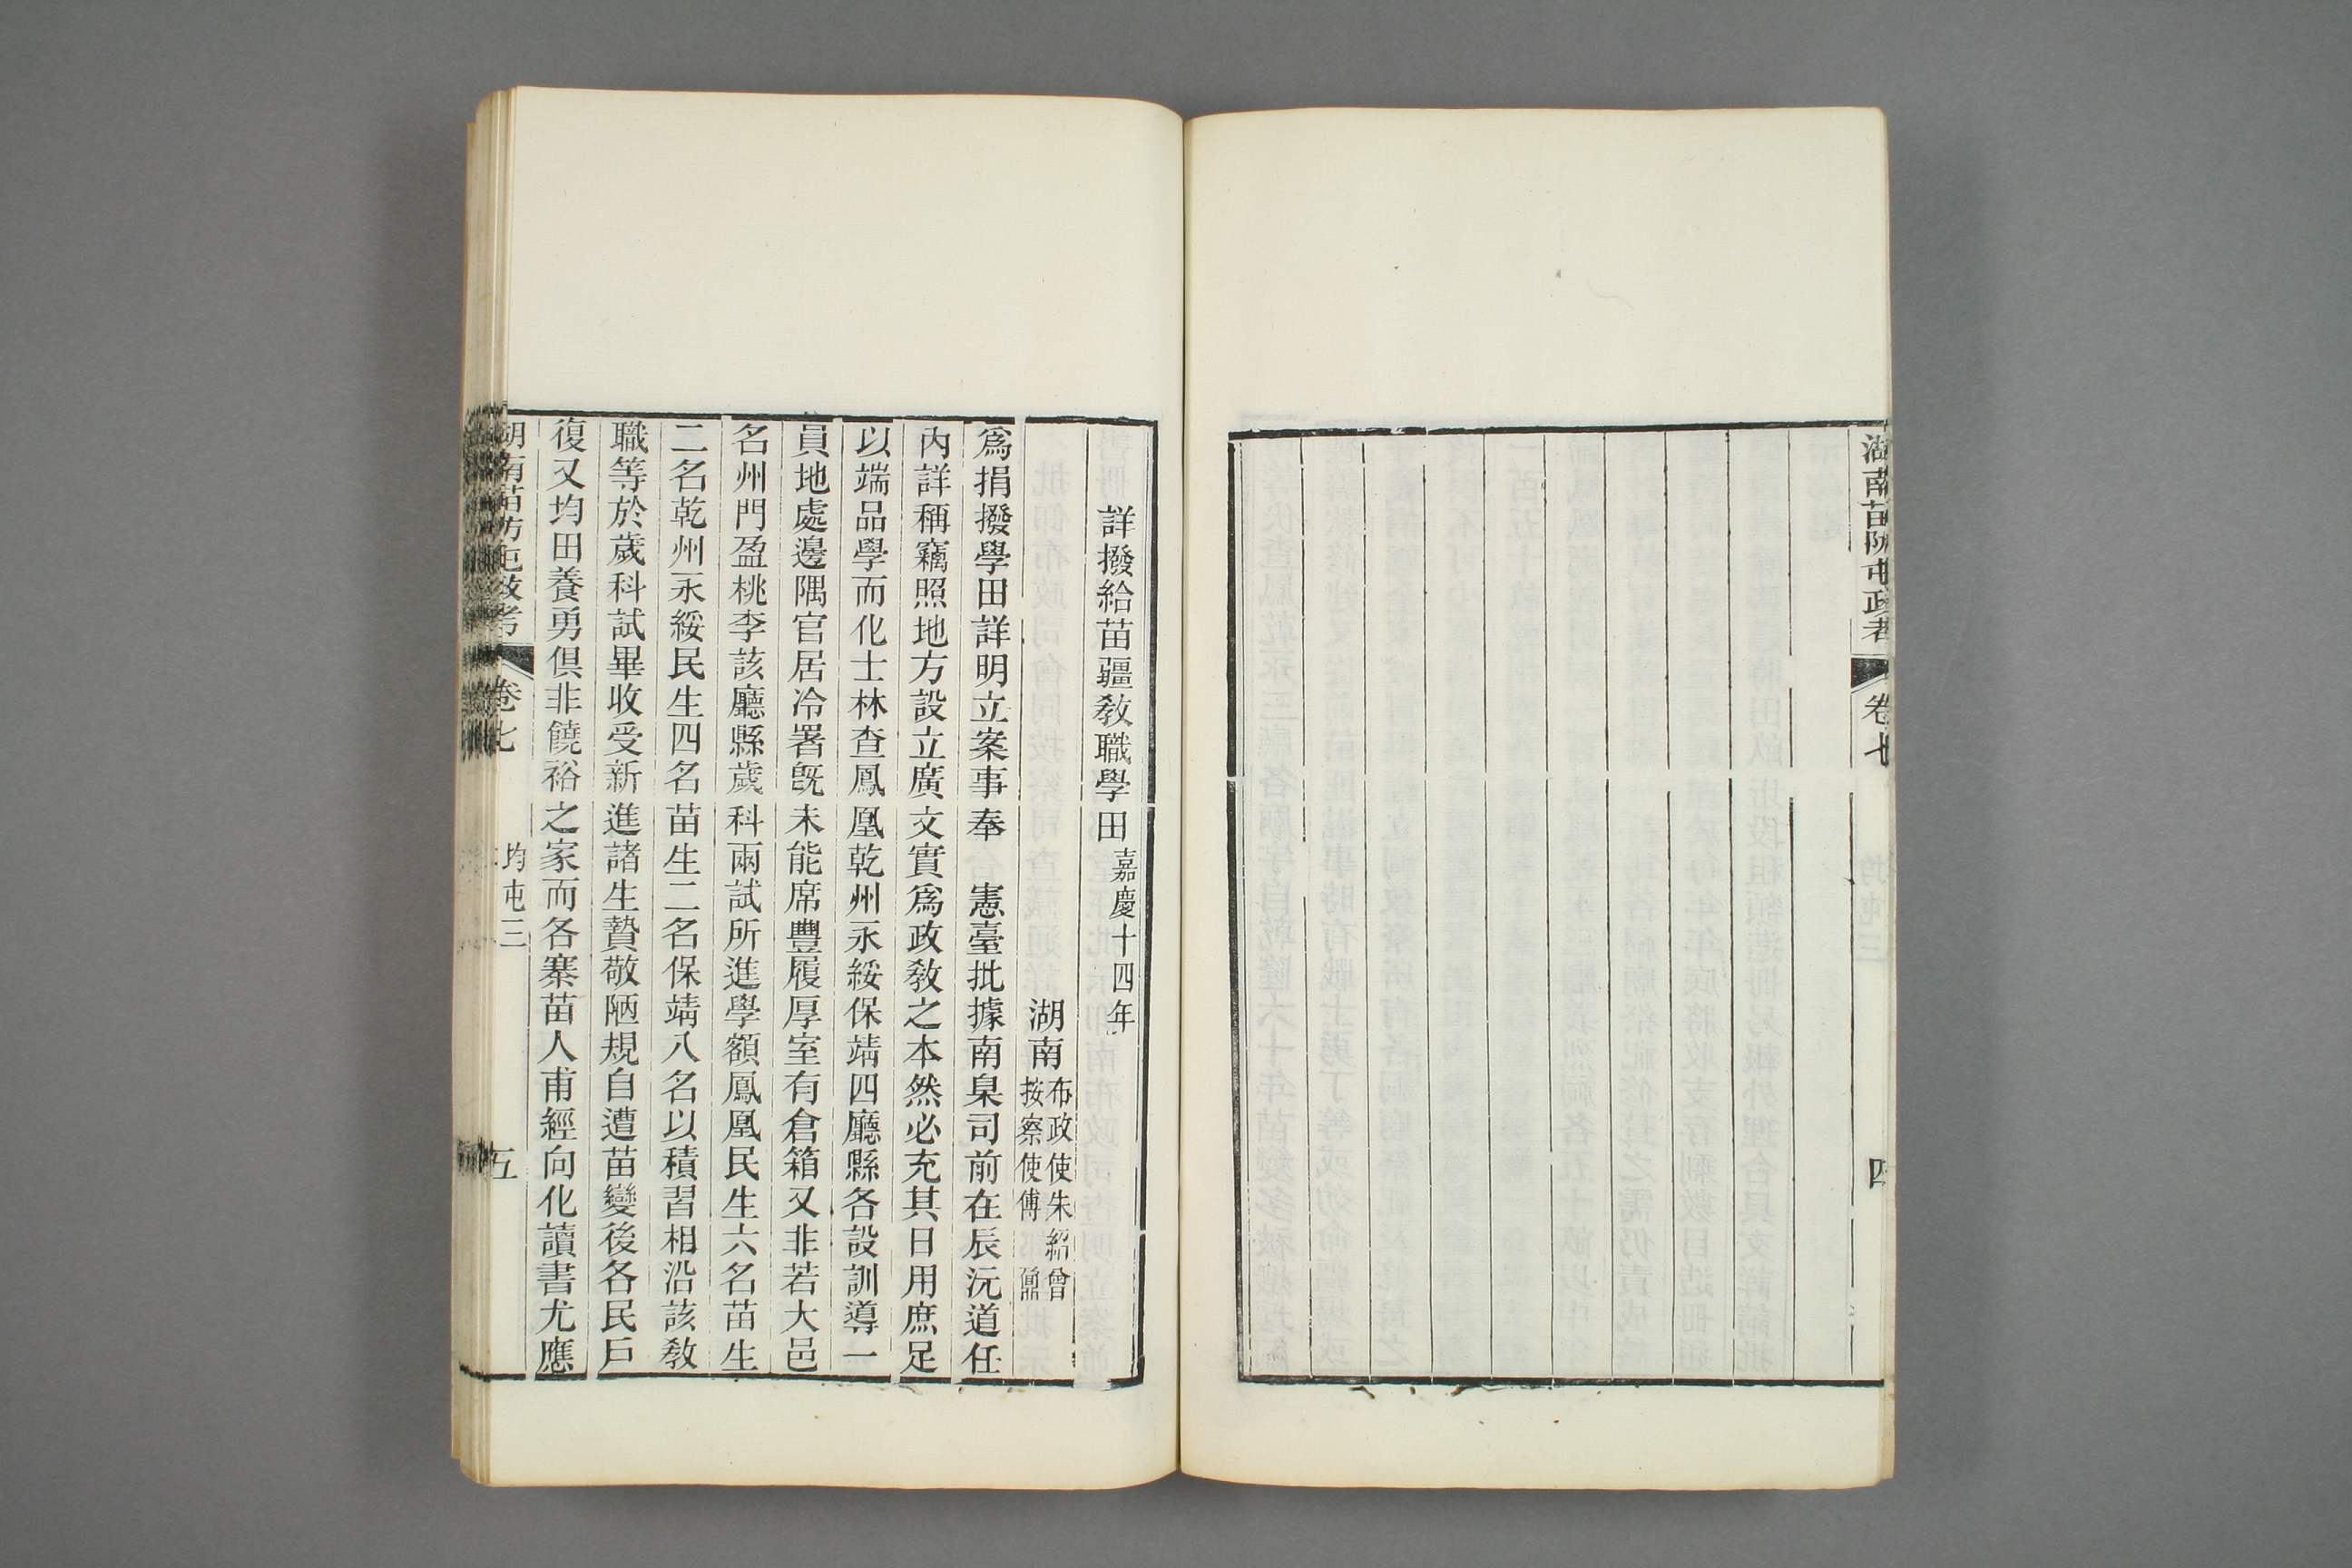 湖南苗防屯政考
卷七
四
詳撥給苗疆敎職學田嘉慶十四年
湖南布政使朱紹曾
按察使傅鼐
爲捐撥學田詳明立案事奉　憲臺批據南臬司前在辰沅道任
內詳稱竊照地方設立廣文實爲政敎之本然必充其日用庶足
以端品學而化士林查鳳凰乾州永綏保靖四廳縣各設訓導一
員地處邊隅官居冷署旣未能席豐履厚室有倉箱又非若大邑
名州門盈桃李該廳縣歲科兩試所進學額鳳凰民生六名苗生
二名乾州永綏民生四名苗生二名保靖八名以積習相沿該敎
職等於歲科試畢收受新進諸生贄敬陋規自遭苗變後各民戶
復又均田養勇俱非饒裕之家而各寨苗人甫經向化讀書尤應
湖南苗防屯政考
卷七
均屯三
五